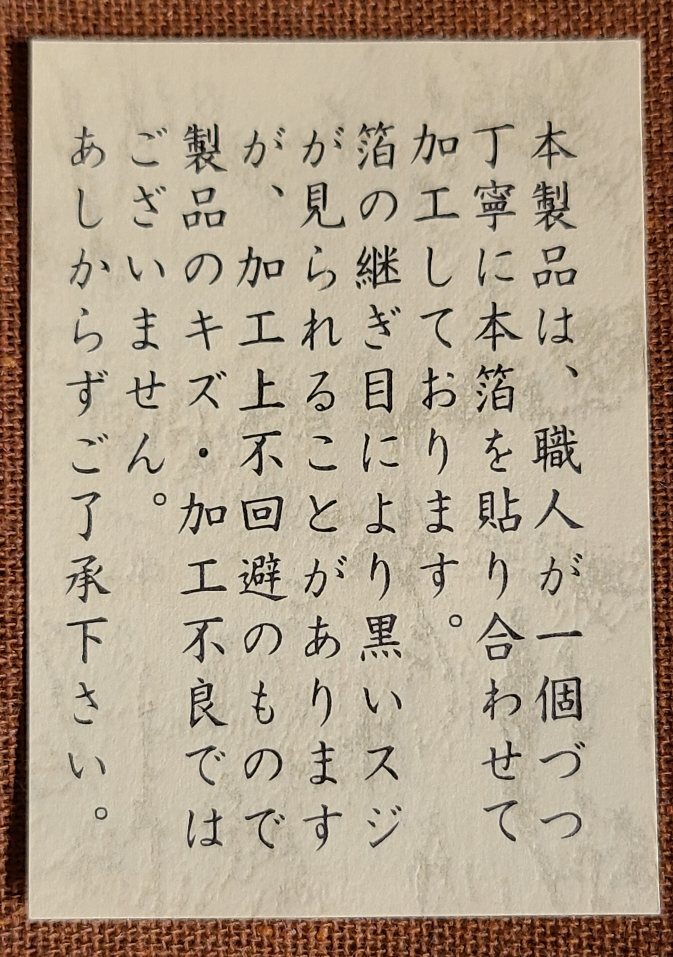 本製品は、職人が一個づつ
丁寧に本箔を貼り合わせて
加工しております。
箔の継ぎ目により黒いスジ
が見られることがあります
が、加工上不回避のもので
製品のキズ・加工不良では
ございません。
あしからずご了承下さい。